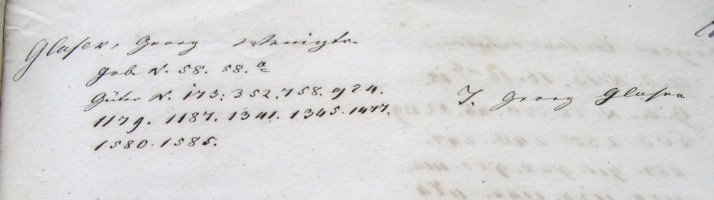 Glaser, Georg
Geb. N. 58. 58.a
Güter N. 173. 352. 758. 924.
1179. 1187. 1341. 1345. 1477.
1580. 1585.
T. Georg Glaser